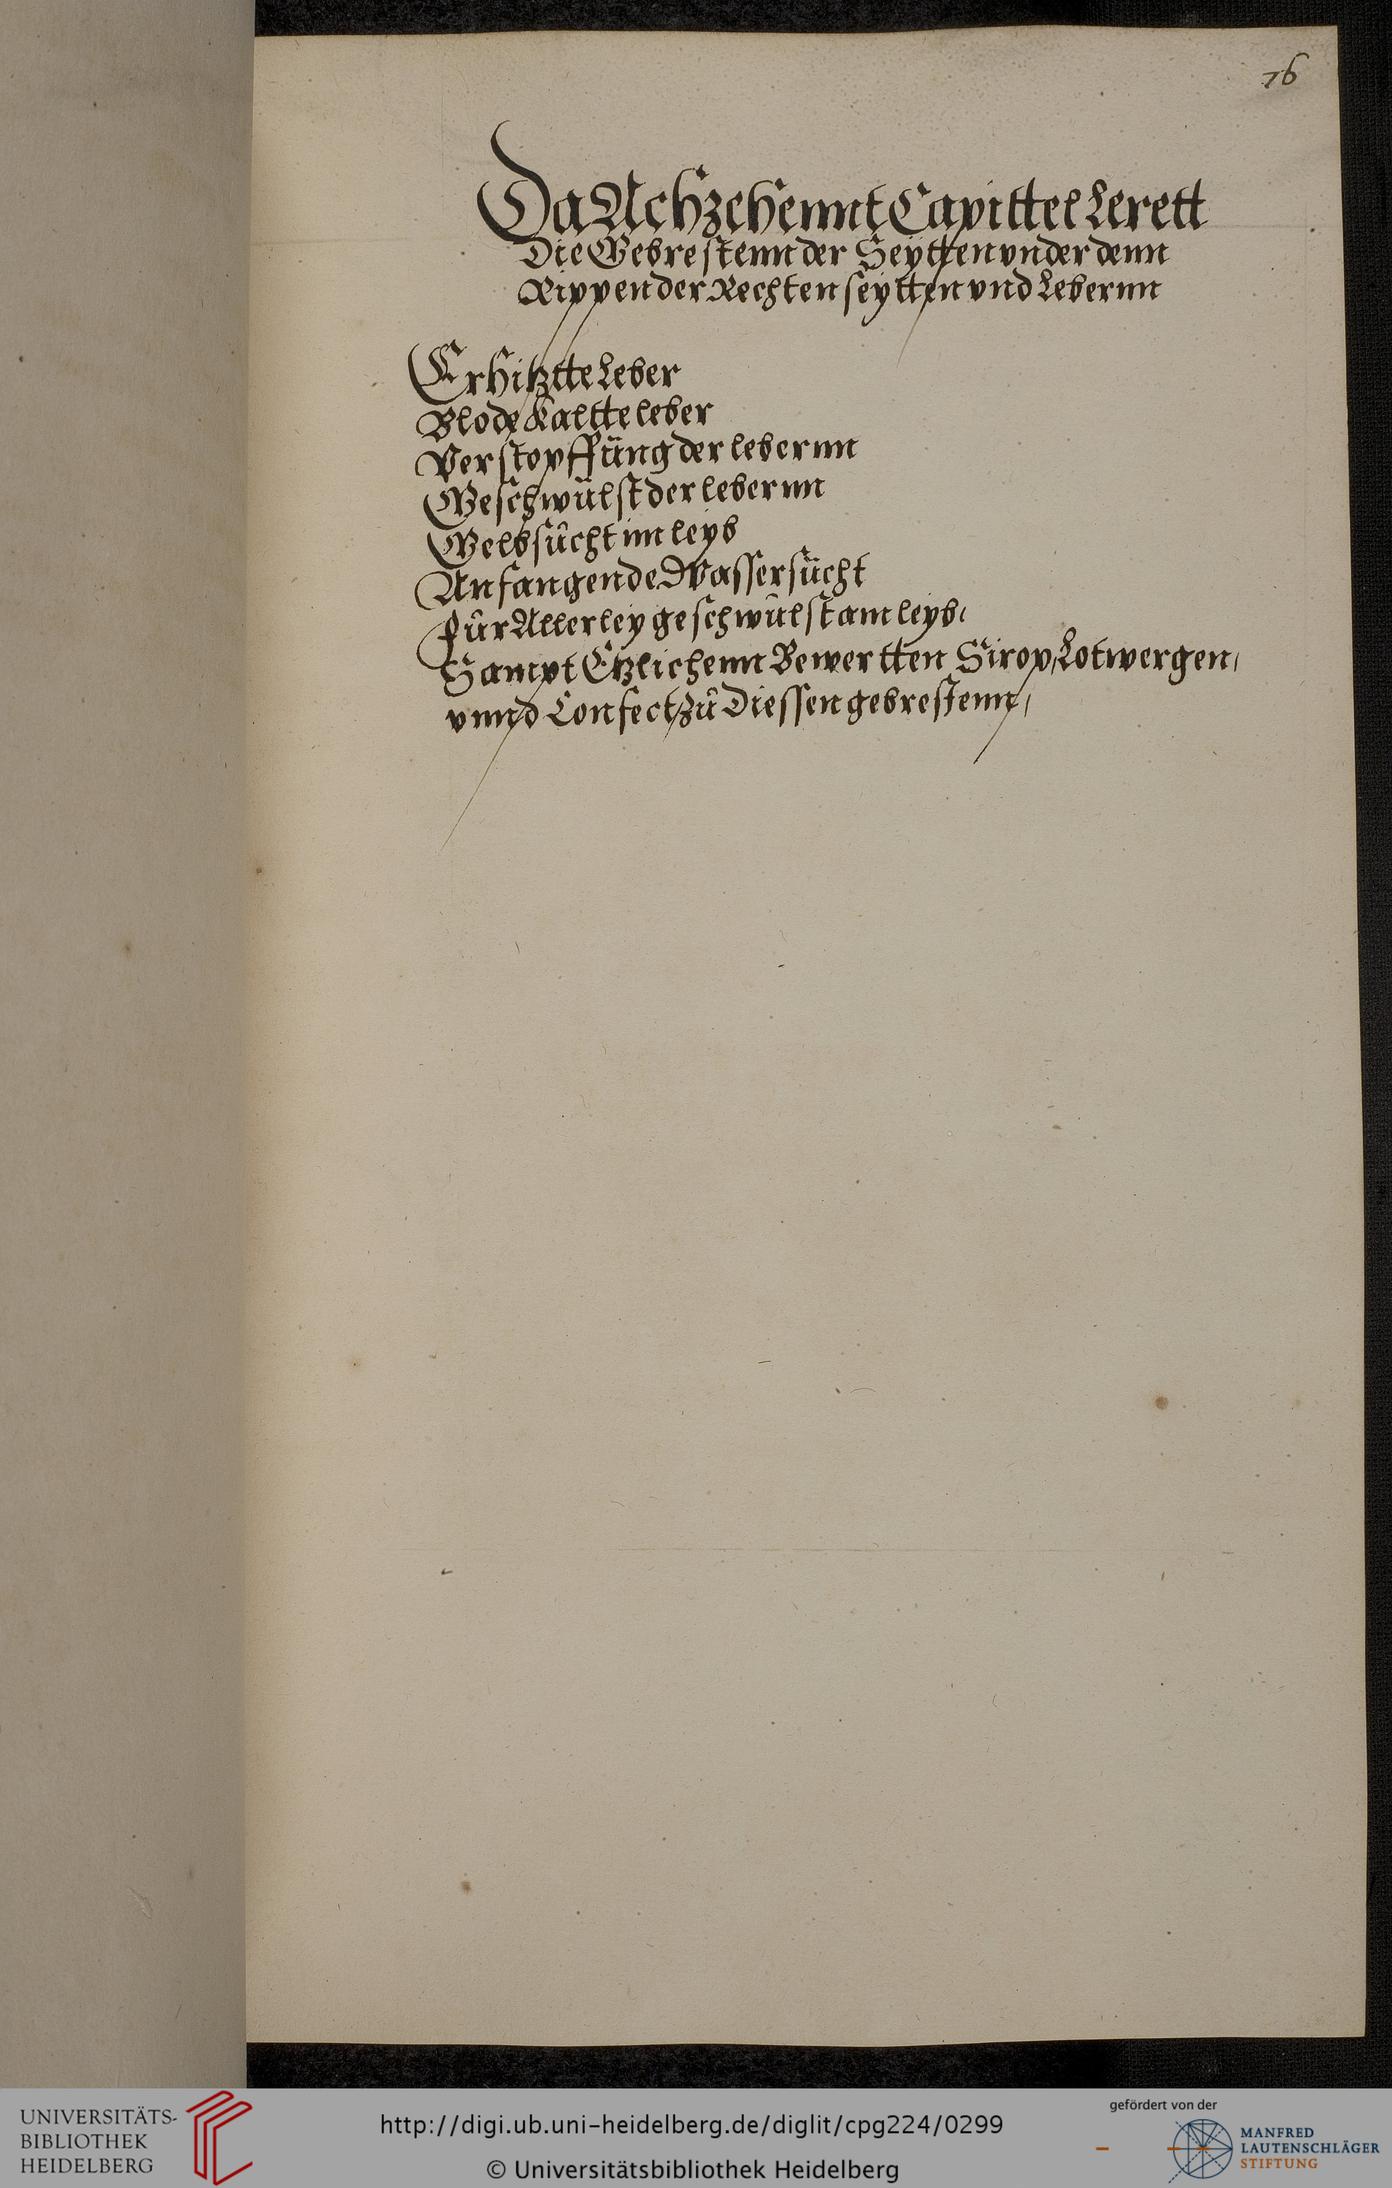 76
Da Achzehennt Capittel Lerett
Die Gebrestenn der Seytten vnder denn
Rippen der Rechten seytten vnd Lebernn
Erhitztte Leber
Blode Kaltte leber
Verstopffüng der lebernn
Geschwülst der lebernn
Gelbsücht im leyb
Anfangende Wassersücht
Für Allerley geschwülst am leyb,
Sampt Etzlichenn Bewertten Sirop, Lotwergen,
vnnd Confect, zu Diessen gebrestenn,
UNIVERSITÄTS-
BIBLIOTHEK
HEIDELBERG
http://digi.ub.uni-heidelberg.de/diglit/cpg224/0299
© Universitätsbibliothek Heidelberg
gefördert von der
MANFRED
LAUTENSCHLÄGER
STIFTUNG